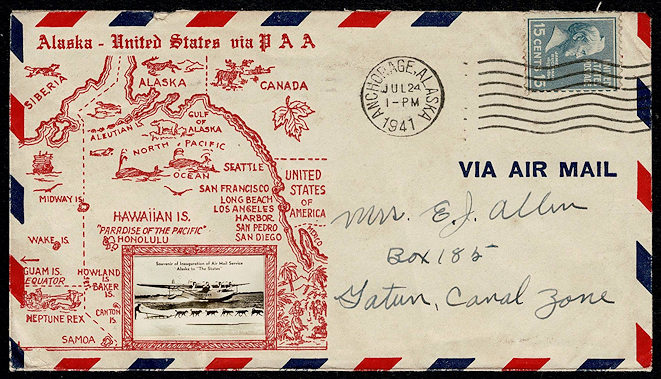 Alaska - United States via P A A
SIBERIA
ALASKA
CANADA
ALEUTIAN IS.
GULF
OF
ALASKA
NORTH PACIFIC
OCEAN
SEATTLE
MIDWAY IS.
SAN FRANCISCO
LONG BEACH
LOS ANGELES
HARBOR
SAN PEDRO
SAN DIEGO
UNITED
STATES
OF
AMERICA
MEXICO
HAWAIIAN IS.
"PARADISE OF THE PACIFIC"
HONOLULU
WAKE IS.
GUAM IS.
EQUATOR
HOWLAND
IS.
BAKER
IS.
CANTON
IS.
NEPTUNE REX
SAMOA
Souvenir of Inauguration of Air Mail Service
Alaska to "The States"
ANCHORAGE, ALASKA
JUL 24
1-PM
1941
15 CENTS 15
VIA AIR MAIL
Mrs. E. J. Allen
Box 185
Gatun, Canal Zone